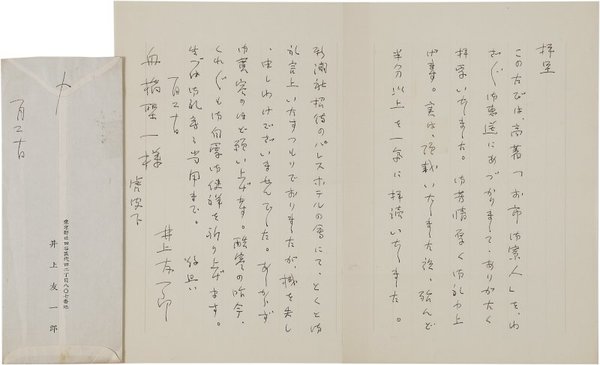 拝呈
この度は、高著「お市御寮人」を、わ
ざわざ御恵送にあづかりまして、ありがたく
拝受いたしました。御芳情厚く御礼申上
げます。実は、頂戴いたしました後、殆んど
半分以上を一気に拝読いたしました。
新潮社招待のパレスホテルの会にて、とくと御
礼言上いたすつもりでおりましたが、機を失し
、申しわけございませんでした。あしからず
御寛容のほど願い上げます。酷寒の時今、
くれぐれも御自愛御健祥を祈り上げます。
先づは御礼まで
一月二十日
井上友一郎
舟橋聖一様
一月二十日
東京都世田谷区代田二丁目八〇七番地
井上友一郎